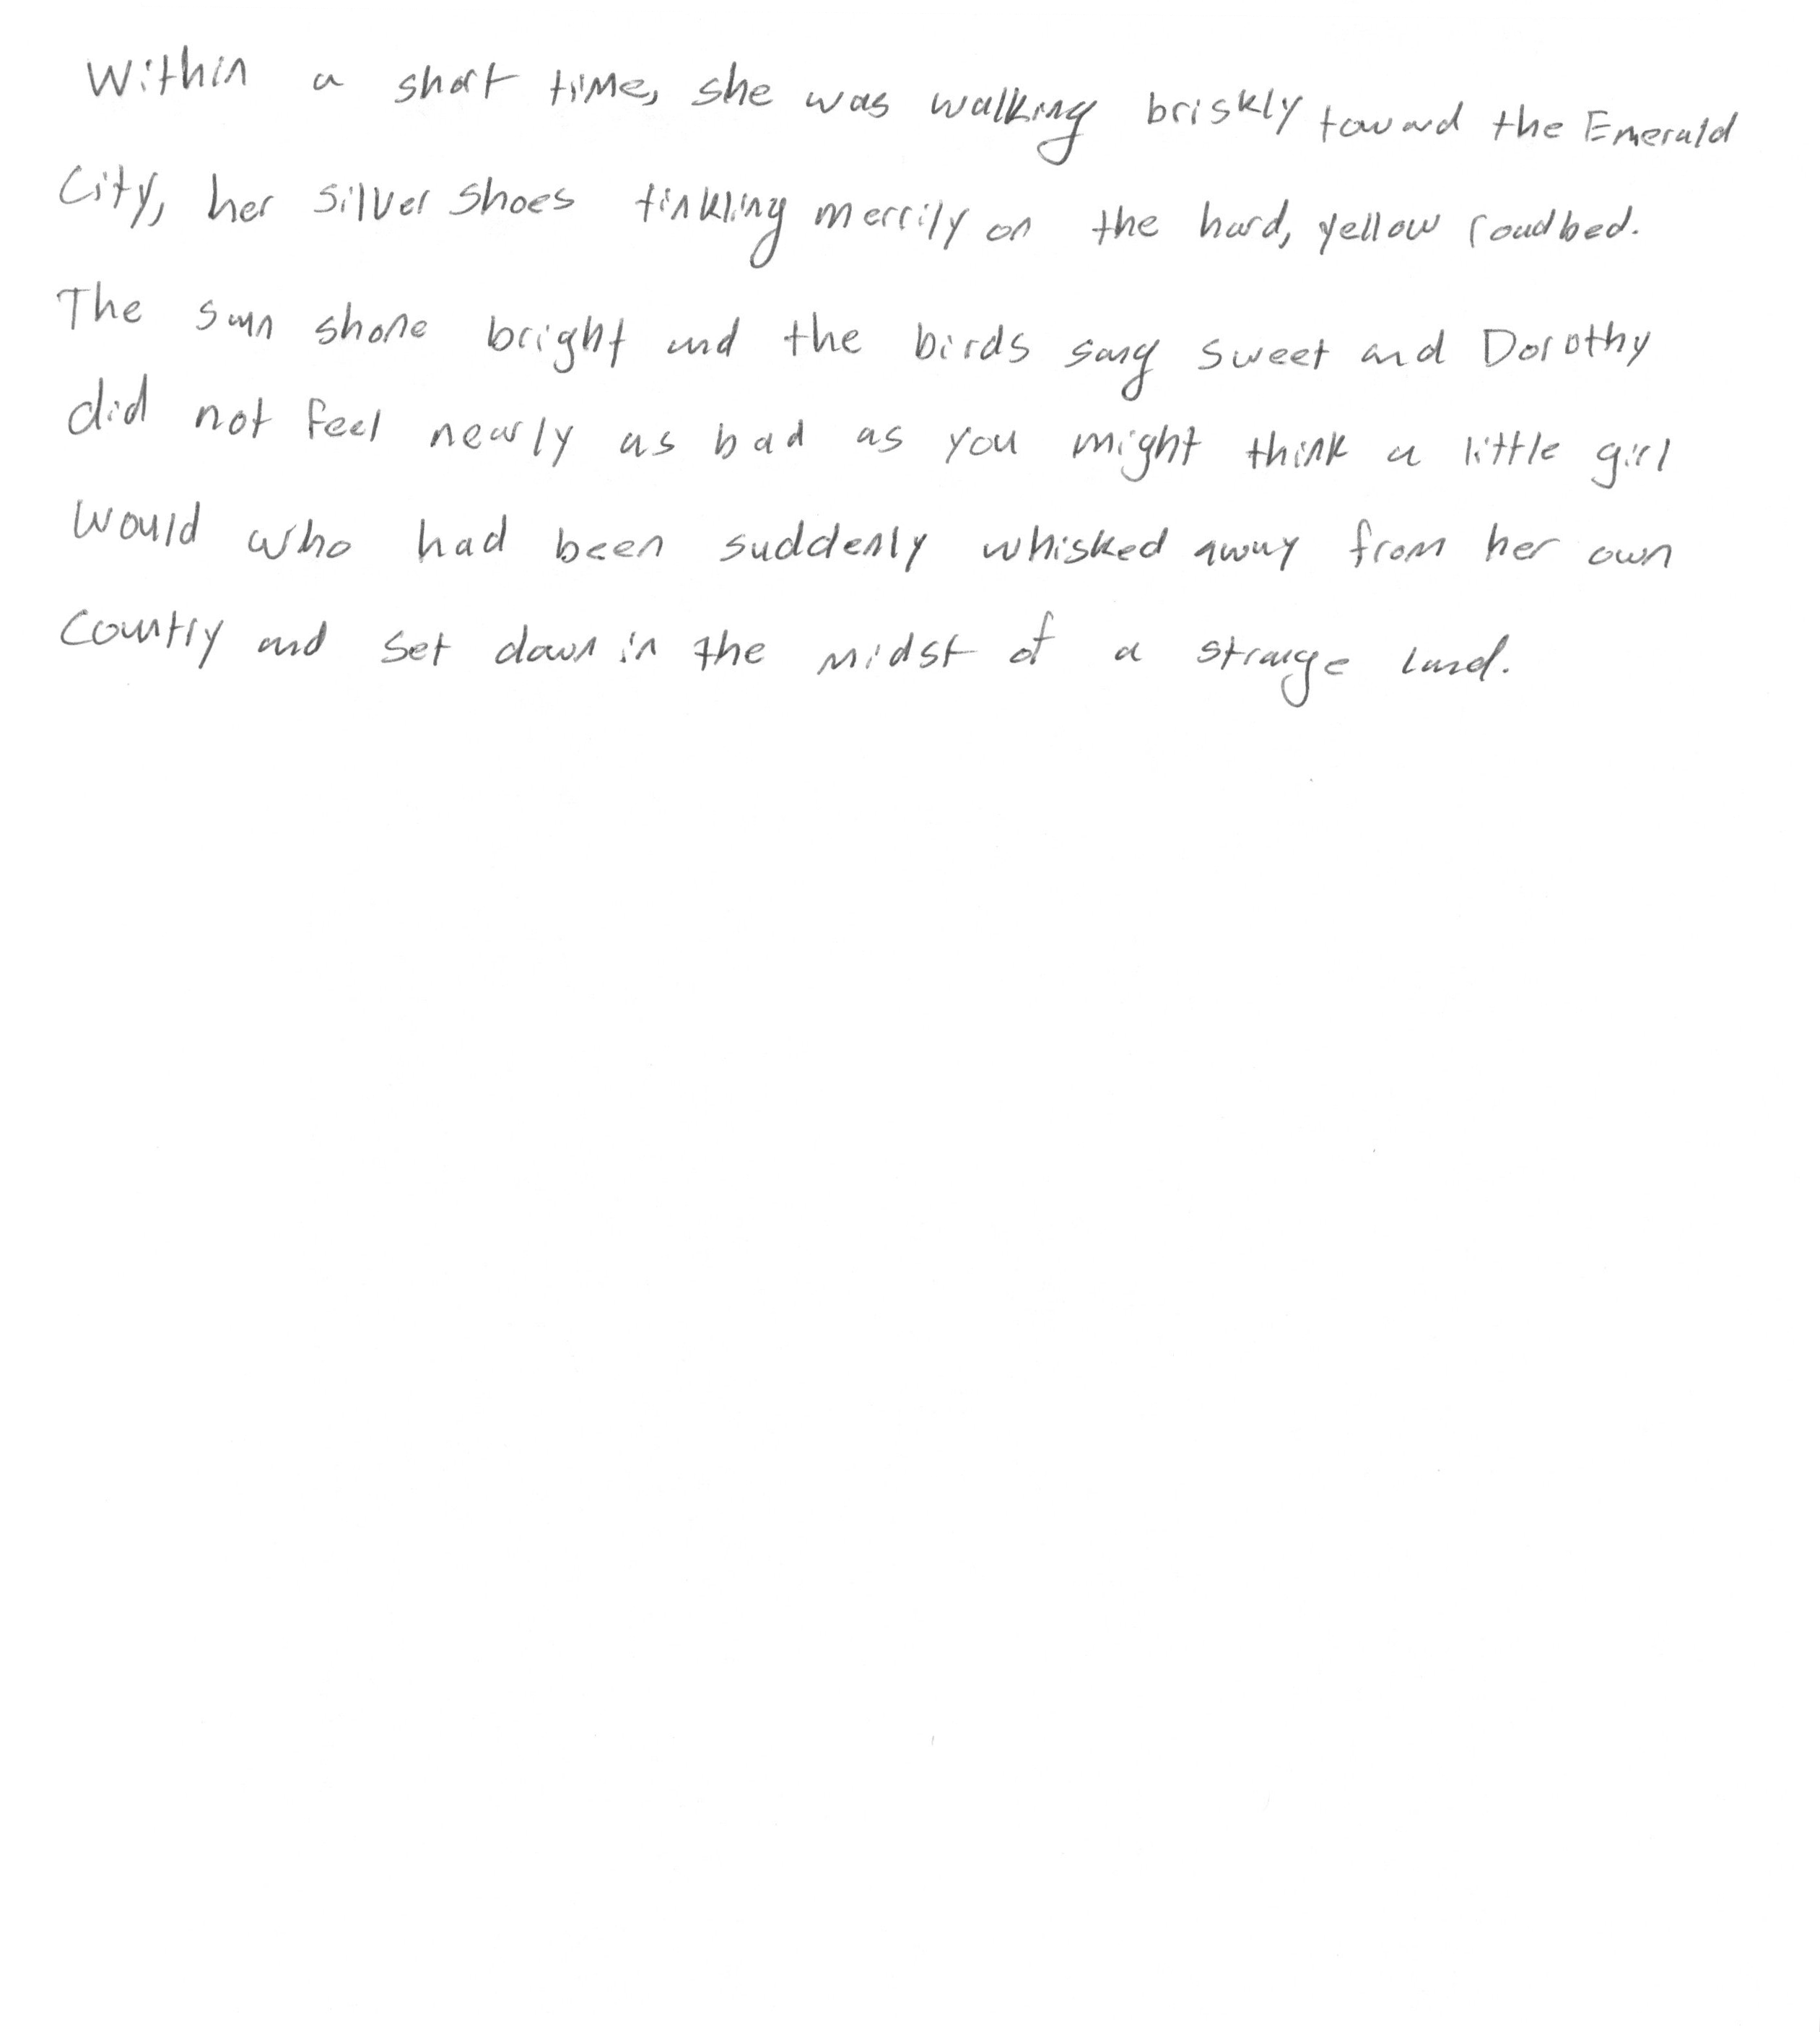 Within a short time, she was walking briskly toward the Emerald
City, her silver shoes tinkling merrily on the hard, yellow roadbed.
The sun shone bright and the birds sang sweet and Dorothy
did not feel nearly as bad as you might think a little girl
would who had been suddenly whisked away from her own
country and set down in the midst of a strange land.